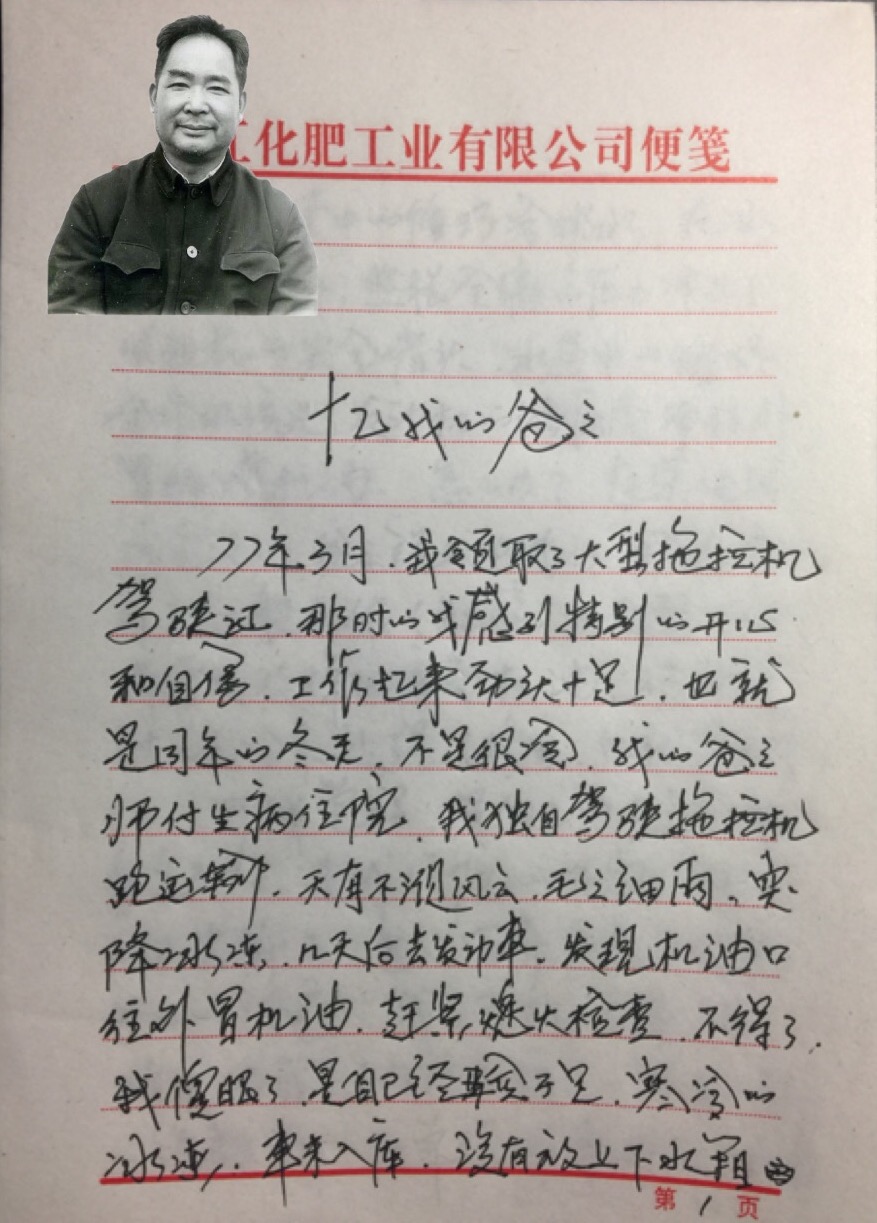 工化肥工业有限公司便笺
忆我的爸爸
77年3月.我领取了大型拖拉机
驾驶证.那时的我感到特别的开心
和自信.工作起来劲头十足.也就
是同年的冬天.不是很冷.我的爸爸
师付生病住院.我独自驾驶拖拉机
跑运输.天有不测风云.毛毛细雨.突
降冰冻.几天后去发动车.发现机油口
往外冒机油.赶紧熄火检查.不得了.
我傻眼了.是自己经验不足.寒冷的
冰冻.车未入库.没有放上下水箱
第 1 页